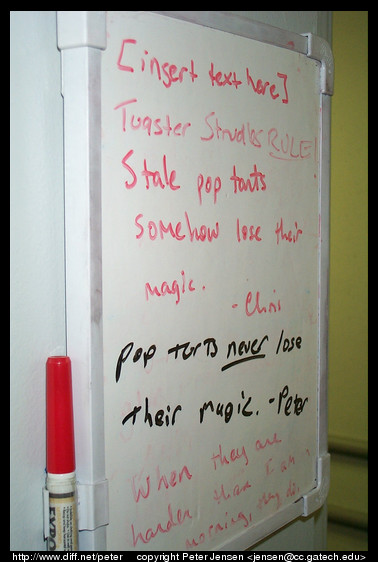 [insert text here]
Toaster Strudles RULE!
Stale pop tarts
somehow lose their
magic.
- Chris
pop tarts never lose
their magic. -Peter
When they are
harder than I am
morning, they do.
EXPO
http://www.diff.net/peter copyright Peter Jensen <jensen@cc.gatech.edu>